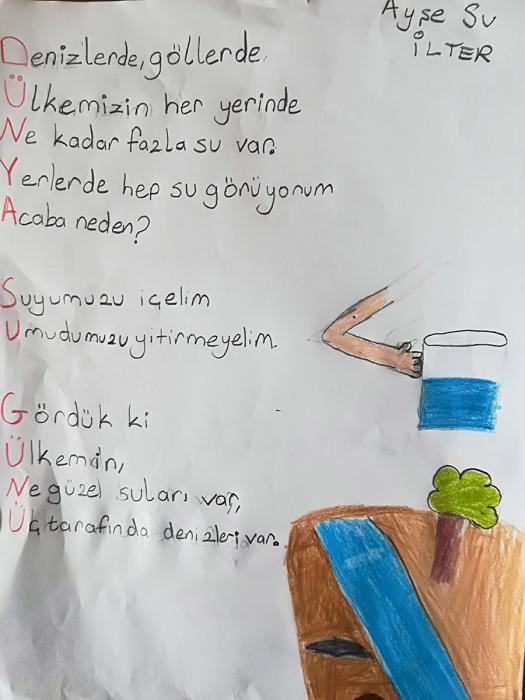 Ayşe Su
İLTER
Denizlerde, göllerde
Ülkemizin her yerinde
Ne kadar fazla su var.
Yerlerde hep su görüyorum
Acaba neden?
Suyumuzu içelim
Umudumuzu yitirmeyelim.
Gördük ki
Ülkemin,
Ne güzel suları var,
Üç tarafında denizleri var.